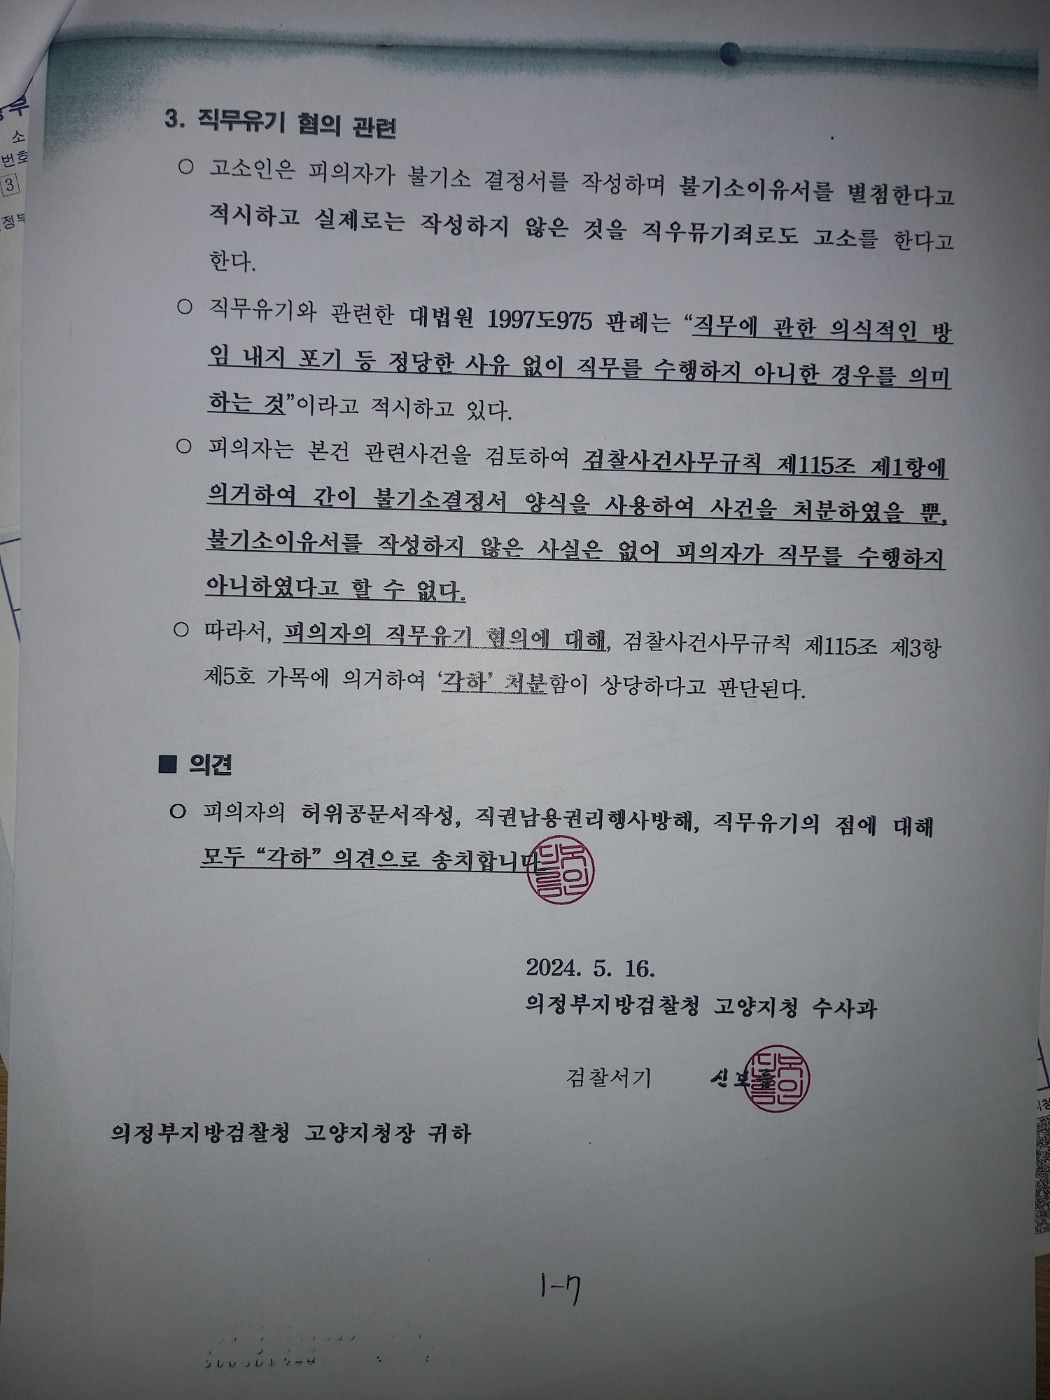 3. 직무유기 혐의 관련
○ 고소인은 피의자가 불기소 결정서를 작성하며 불기소이유서를 별첨한다고
적시하고 실제로는 작성하지 않은 것을 직우뮤기죄로도 고소를 한다고
한다.
○ 직무유기와 관련한 대법원 1997도975 판례는 “직무에 관한 의식적인 방
임 내지 포기 등 정당한 사유 없이 직무를 수행하지 아니한 경우를 의미
하는 것”이라고 적시하고 있다.
○ 피의자는 본건 관련사건을 검토하여 검찰사건사무규칙 제115조 제1항에
의거하여 간이 불기소결정서 양식을 사용하여 사건을 처분하였을 뿐,
불기소이유서를 작성하지 않은 사실은 없어 피의자가 직무를 수행하지
아니하였다고 할 수 없다.
○ 따라서, 피의자의 직무유기 혐의에 대해, 검찰사건사무규칙 제115조 제3항
제5호 가목에 의거하여 ‘각하’ 처분함이 상당하다고 판단된다.
■ 의견
○ 피의자의 허위공문서작성, 직권남용권리행사방해, 직무유기의 점에 대해
모두 “각하” 의견으로 송치합니다
2024. 5. 16.
의정부지방검찰청 고양지청 수사과
검찰서기 신보름
의정부지방검찰청 고양지청장 귀하
1-7
소
번호
3